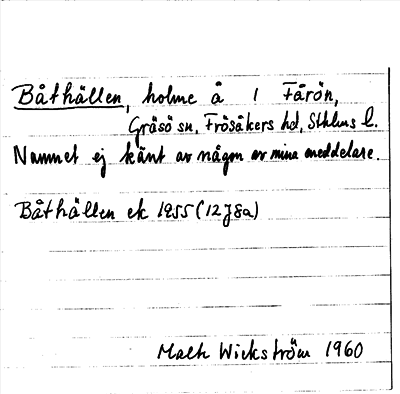 Båthällen, holme å 1 Fårön,
Gräsö sn, Frösåkers hd, Sthlms l.
Namnet ej känt av någon av mina meddelare.
Båthällen ek 1955 (12J8a)
Malte Wickström 1960